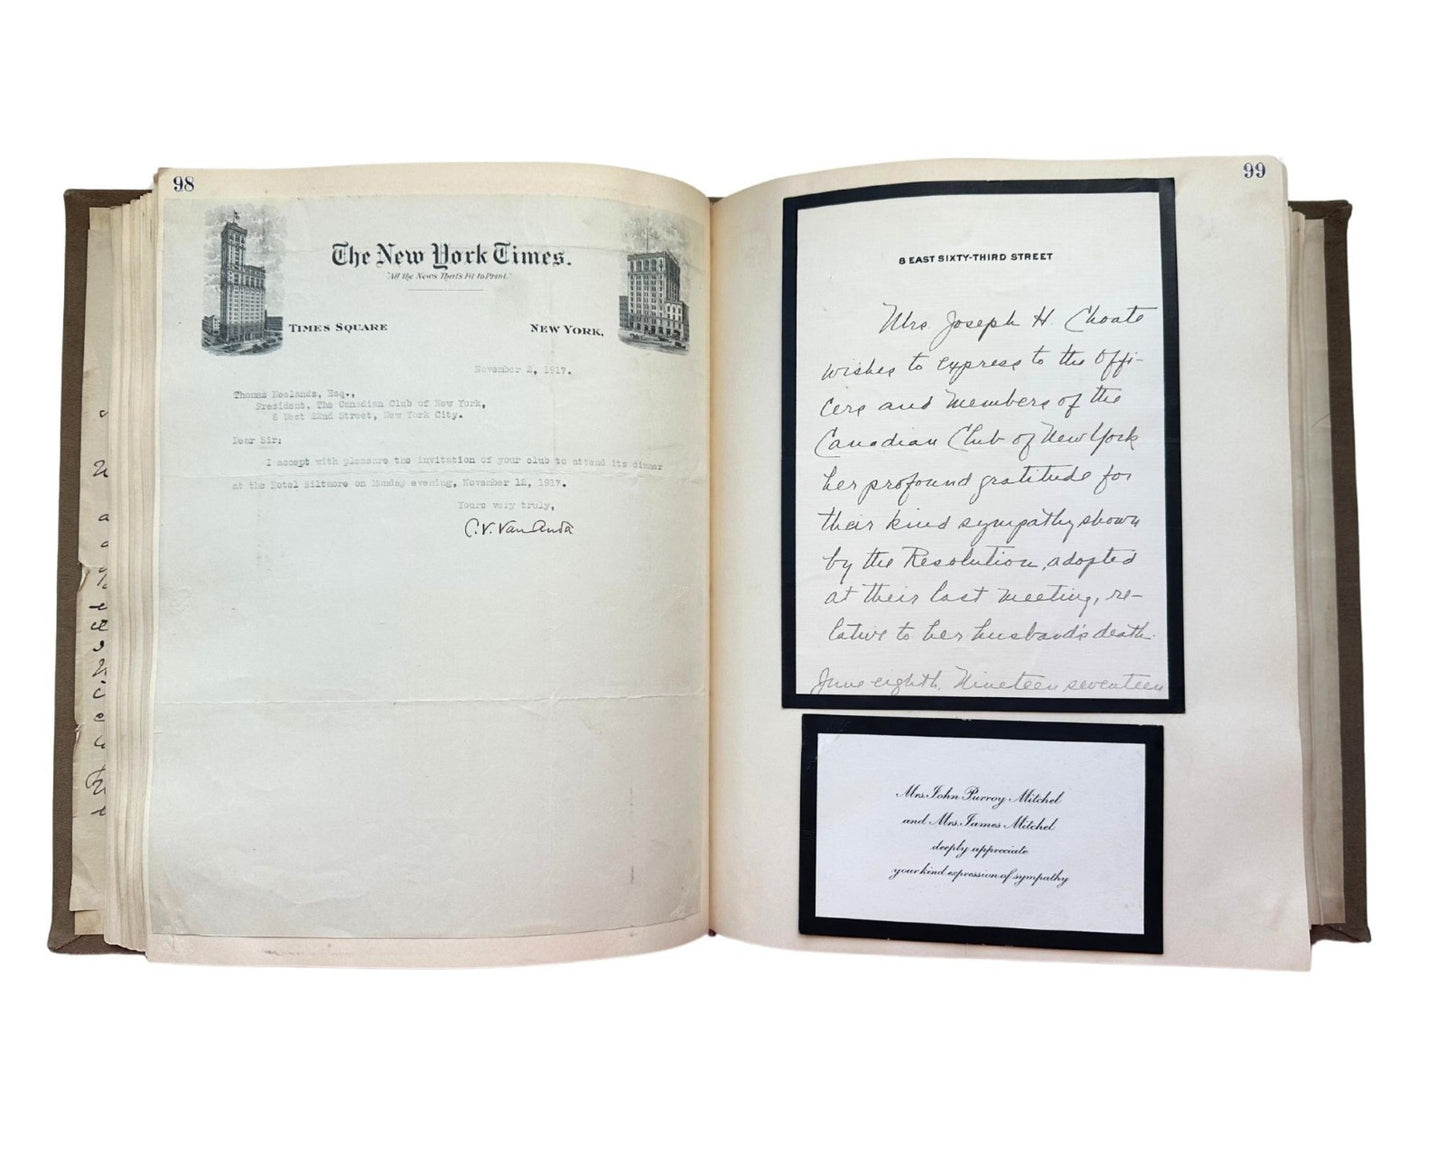 98
The New York Times.
"All the News That's Fit to Print."
TIMES SQUARE NEW YORK,
November 2, 1917.
Thomas Neelands, Esq.,
President, The Canadian Club of New York,
West 22nd Street, New York City.
Dear Sir:
I accept with pleasure the invitation of your club to attend its dinner
at the Hotel Biltmore on Monday evening, November 12, 1917.
Yours very truly,
C.V. Van Anda
99
8 EAST SIXTY-THIRD STREET
Mrs. Joseph H. Choate
wishes to express to the Offi-
cers and Members of the
Canadian Club of New York
her profound gratitude for
their kind sympathy shown
by the Resolution, adopted
at their last meeting, re-
lative to her husband's death.
June eighth, Nineteen seventeen
Mrs. John Purroy Mitchel
and Mrs. James Mitchel
deeply appreciate
your kind expression of sympathy